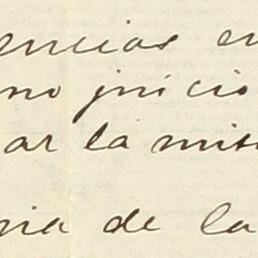 encias en
no juicio
ar la mis
ria de la